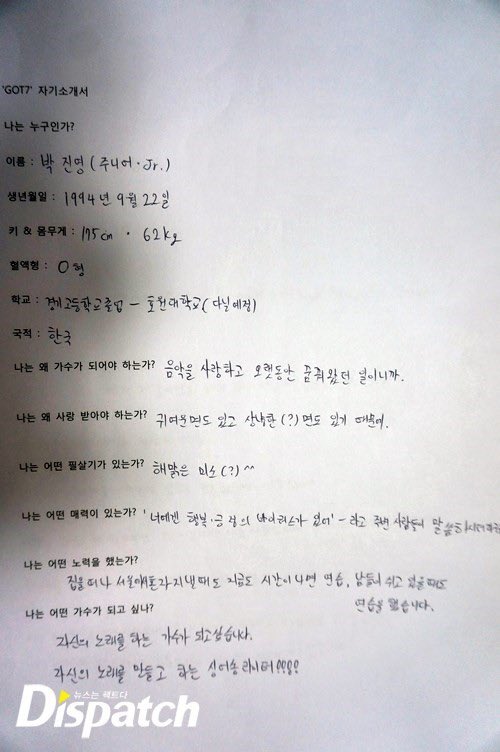 'GOT7' 자기소개서
나는 누구인가?
이름 : 박 진영 (주니어·Jr.)
생년월일 : 1994년 9월 22일
키 & 몸무게 : 175cm · 62kg
혈액형 : O형
학교 : 경기고등학교졸업 - 호원대학교(다닐예정)
국적 : 한국
나는 왜 가수가 되어야 하는가? 음악을 사랑하고 오랫동안 꿈꿔왔던 일이니까.
나는 왜 사랑 받아야 하는가? 귀여운면도 있고 상남한(?)면도 있기 때문에.
나는 어떤 필살기가 있는가? 해맑은 미소(?)^^
나는 어떤 매력이 있는가? '너에겐 행복·긍정의 바이러스가 있어' - 라고 주변 사람들이 말씀하시더라
나는 어떤 노력을 했는가?
집을 떠나 서울에 혼자 지낼때도 지금도 시간이 나면 연습, 남들이 쉬고 있을때도
연습을 했습니다.
나는 어떤 가수가 되고 싶나?
자신의 노래를 하는 가수가 되고싶습니다.
자신의 노래를 만들고 하는 싱어송라이터!!!!
뉴스는 팩트다
Dispatch